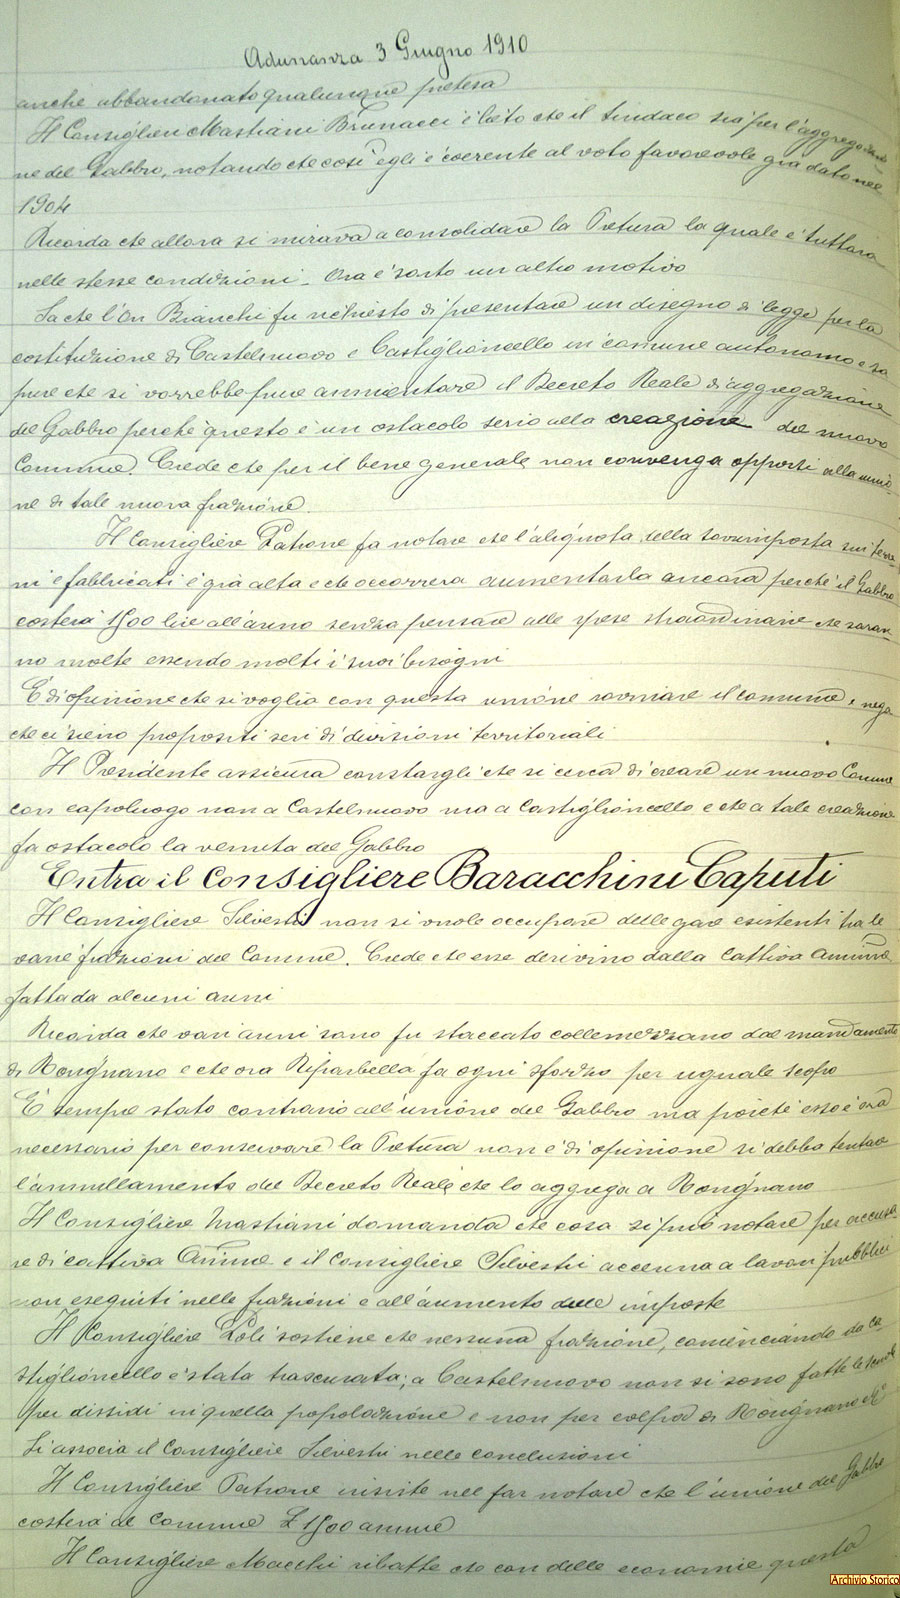 Adunanza 3 Giugno 1910
anche abbandonato qualunque pretesa
Il Consiglieri Mastiani Brunacci è lieto che il sindaco sia per l'aggregazio
ne del Gabbro, notando che così egli è coerente al voto favorevole già dato nel
1904
Ricorda che allora si mirava a consolidare la Pretura la quale è tuttora
nelle stesse condizioni - Ora è sorto un altro motivo
Sa che l'On Bianchi fu richiesto di presentare un disegno di legge per la
costituzione di Castelnuovo e Castiglioncello in comune autonomo e sa
pure che si vorrebbe fare annientare il Decreto Reale di aggregazione
del Gabbro perché questo è un ostacolo serio alla creazione del nuovo
Comune. Crede che per il bene generale non convenga opporsi alla unio-
ne di tale nuova frazione.
Il Consigliere Patrone fa notare che l'aliquota della sovrimposta sui terre-
ni e fabbricati è già alta e che occorrerà aumentarla ancora perché il Gabbro
costerà 1500 lire all'anno senza pensare alle spese straordinarie che saran-
no molte essendo molti i suoi bisogni
È di opinione che si voglia con questa unione rovinare il comune e nega
che ci sieno propositi seri di divisioni territoriali
Il Presidente assicura constargli che si cerca di creare un nuovo Comune
con capoluogo non a Castelnuovo ma a Castiglioncello e che a tale creazione
fa ostacolo la venuta del Gabbro
Entra il Consigliere Baracchini Caputi
Il Consigliere Silvestri non si vuole occupare delle gare esistenti tra le
varie frazioni del Comune. Crede che esse derivino dalla cattiva Ammne
fatta da alcuni anni
Ricorda che vari anni sono fu staccato Collemezzano dal mandamento
di Rosignano e che ora Riparbella fa ogni sforzo per uguale scopo
È sempre stato contrario all'unione del Gabbro ma poiché esso è ora
necessario per conservare la Pretura non è di opinione si debba tentare
l'annullamento del Decreto Reale che lo aggrega a Rosignano
Il Consigliere Mastiani domanda che cosa si può notare per accusa
re di cattiva Ammne e il Consigliere Silvestri accenna a lavori pubblici
non eseguiti nelle frazioni e all'aumento delle imposte
Il Consigliere Poli sostiene che nessuna frazione, cominciando da Ca
stiglioncello è stata trascurata; a Castelnuovo non si sono fatte le scuole
per dissidi in quella popolazione e non per colpa di Rosignano
Si associa il Consigliere Silvestri nelle conclusioni
Il Consigliere Patrone insiste nel far notare che l'unione del Gabbro
costerà al Comune £ 1500 annue
Il Consigliere Macchi ribatte che con delle economie questa
Archivio Storico